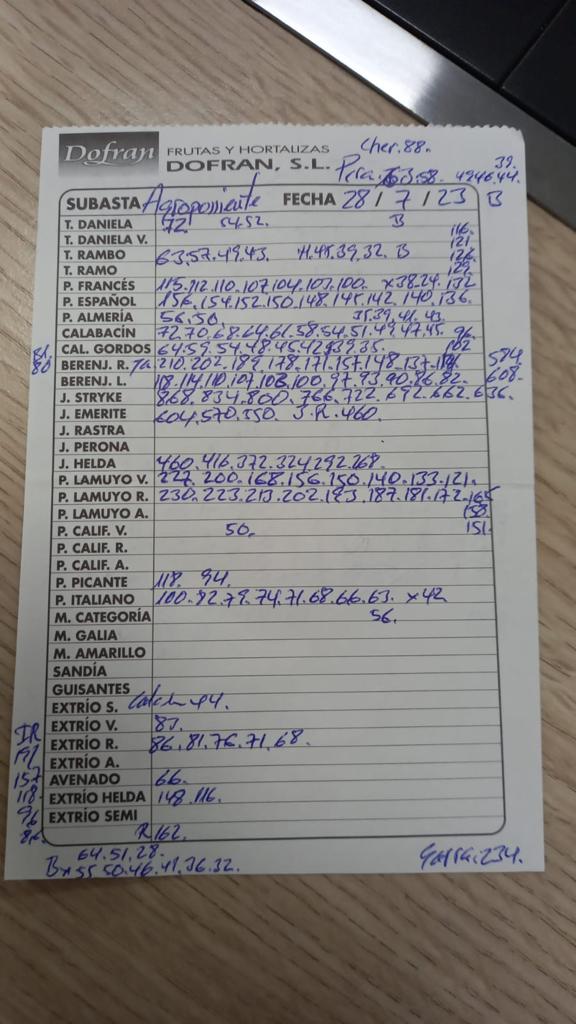 Dofran FRUTAS Y HORTALIZAS
DOFRAN, S.L.
Cher. 88.
39.
58. 49 46. 44.
SUBASTA Agroponiente FECHA 28 / 7 / 23 B
T. DANIELA 72 54.52. B
T. DANIELA V. 116.
121.
T. RAMBO 63.57.49.43. 39.32. B 126.
T. RAMO 129.
P. FRANCÉS 115.112.110.107.104.103.100. x38.24. 132
P. ESPAÑOL 156.154.152.150.148.145.142.140.136.
P. ALMERÍA 56.50. 35.39.41.43.
CALABACÍN 72.70.68.64.61.58.54.51.49.47.45. 96.
CAL. GORDOS 64.59.54.48.45.42.39.35. 102
BERENJ. R. 210.202.189.178.171.157.148.137. 584
BERENJ. L. 118.114.110.107.103.100.97.93.90.86.82. 608.
J. STRYKE 868.834.800.766.722.692.662.636.
J. EMERITE 604.570.550. J.R. 460.
J. RASTRA
J. PERONA
J. HELDA 460.416.372.324.292.268.
P. LAMUYO V. 227.200.168.156.150.140.133.121.
P. LAMUYO R. 230.223.213.202.193.187.181.172.165
P. LAMUYO A. 158.
P. CALIF. V. 50. 151.
P. CALIF. R.
P. CALIF. A.
P. PICANTE 118. 94.
P. ITALIANO 100.92.79.74.71.68.66.63. x42
M. CATEGORÍA 56.
M. GALIA
M. AMARILLO
SANDÍA
GUISANTES
EXTRÍO S. 44.
EXTRÍO V. 83.
EXTRÍO R. 86.81.76.71.68.
EXTRÍO A.
AVENADO 66.
EXTRÍO HELDA 148.116.
EXTRÍO SEMI
R162.
157
118.
96
64.51.28.
Bx55 50.46.41.36.32.
234.